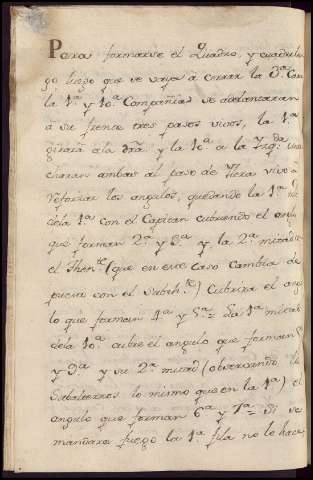 Para formarse el Quadro, y cuadrilon
go luego que se vaya à cerrar la 3ª Cara
la 1ª y 10ª Compañias se adelantaran
à su frente tres pasos vivos, la 1ª
girarà àla dra. y la 10ª à la Yzqda.
charan ambas al paso de Flera vivo à
reforzar los angulos, quedando la 1ª mitad
dela 1ª con el Capitan cubriendo el angulo
que forman 2ª y 3ª y la 2ª mitad
el Thente. (que en este caso cambia de
puesto con el Subthte.) Cubrira el angu
lo que forman 4ª y 5ª = La 1ª mitad
dela 10ª cubre el angulo que forman 8ª
y 9ª y su 2ª mitad (observando los
Subalternos lo mismo que en la 1ª) el
angulo que forman 6ª y 7ª = Si se
mandara fuego la 1ª fila no lo hace,